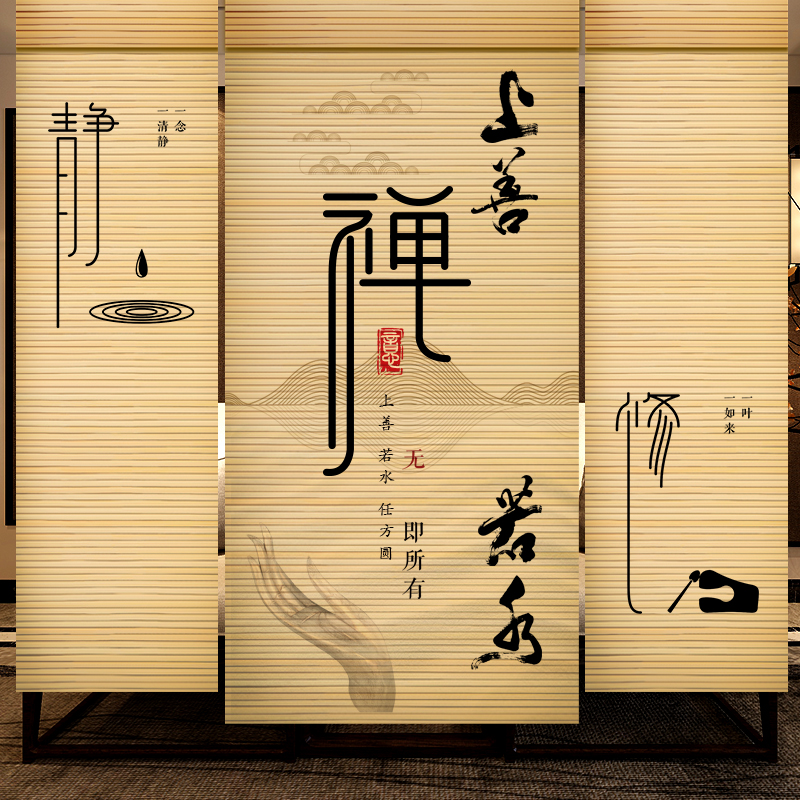 静
一念
一清静
禅
意
上善若水
上善若水任方圆
无即所有
修
一叶
一如来